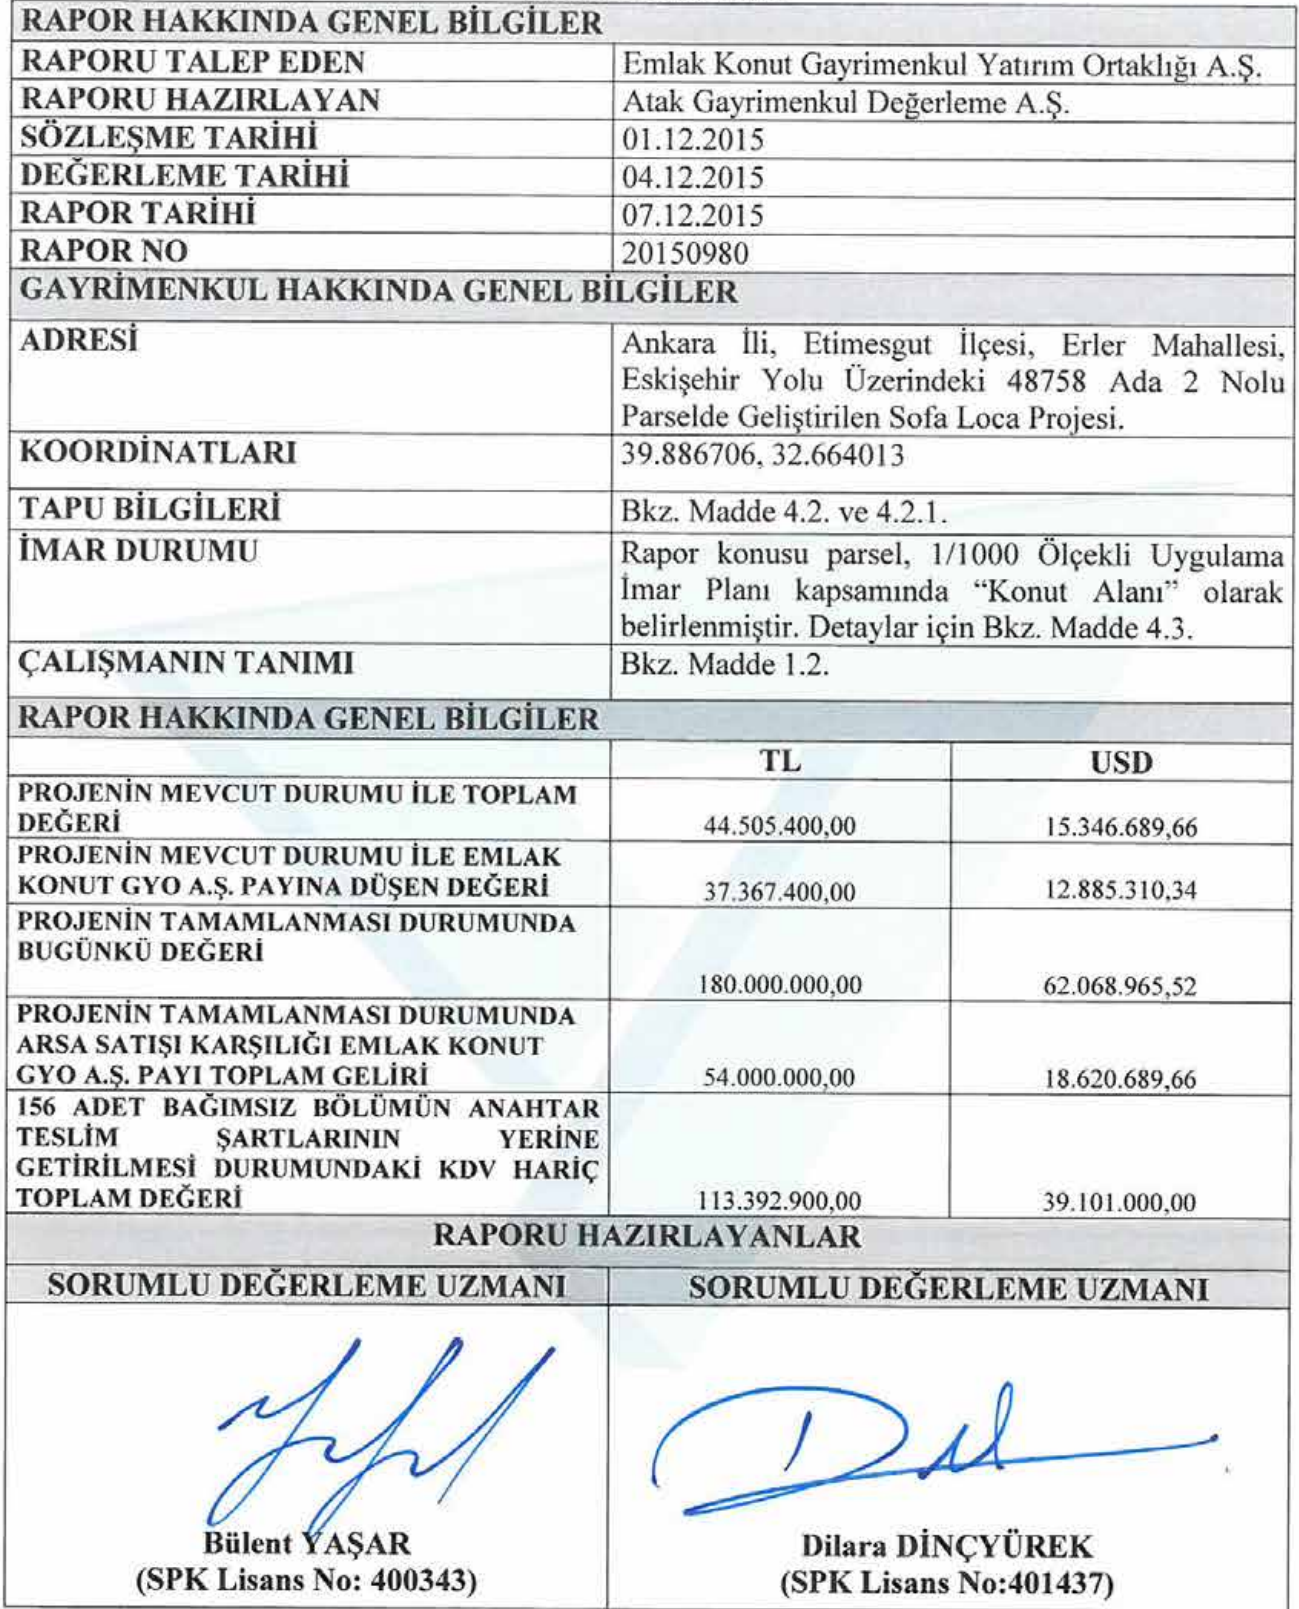 RAPOR HAKKINDA GENEL BİLGİLER
RAPORU TALEP EDEN Emlak Konut Gayrimenkul Yatırım Ortaklığı A.Ş.
RAPORU HAZIRLAYAN Atak Gayrimenkul Değerleme A.Ş.
SÖZLEŞME TARİHİ 01.12.2015
DEĞERLEME TARİHİ 04.12.2015
RAPOR TARİHİ 07.12.2015
RAPOR NO 20150980
GAYRİMENKUL HAKKINDA GENEL BİLGİLER
ADRESİ Ankara İli, Etimesgut İlçesi, Erler Mahallesi,
Eskişehir Yolu Üzerindeki 48758 Ada 2 Nolu
Parselde Geliştirilen Sofa Loca Projesi.
KOORDİNATLARI 39.886706, 32.664013
TAPU BİLGİLERİ Bkz. Madde 4.2. ve 4.2.1.
İMAR DURUMU Rapor konusu parsel, 1/1000 Ölçekli Uygulama
İmar Planı kapsamında “Konut Alanı” olarak
belirlenmiştir. Detaylar için Bkz. Madde 4.3.
ÇALIŞMANIN TANIMI Bkz. Madde 1.2.
RAPOR HAKKINDA GENEL BİLGİLER
TL USD
PROJENİN MEVCUT DURUMU İLE TOPLAM
DEĞERİ 44.505.400,00 15.346.689,66
PROJENİN MEVCUT DURUMU İLE EMLAK
KONUT GYO A.Ş. PAYINA DÜŞEN DEĞERİ 37.367.400,00 12.885.310,34
PROJENİN TAMAMLANMASI DURUMUNDA
BUGÜNKÜ DEĞERİ
180.000.000,00 62.068.965,52
PROJENİN TAMAMLANMASI DURUMUNDA
ARSA SATIŞI KARŞILIĞI EMLAK KONUT
GYO A.Ş. PAYI TOPLAM GELİRİ 54.000.000,00 18.620.689,66
156 ADET BAĞIMSIZ BÖLÜMÜN ANAHTAR
TESLİM ŞARTLARININ YERİNE
GETİRİLMESİ DURUMUNDAKİ KDV HARİÇ
TOPLAM DEĞERİ 113.392.900,00 39.101.000,00
RAPORU HAZIRLAYANLAR
SORUMLU DEĞERLEME UZMANI SORUMLU DEĞERLEME UZMANI
Bülent YAŞAR Dilara DİNÇYÜREK
(SPK Lisans No: 400343) (SPK Lisans No:401437)